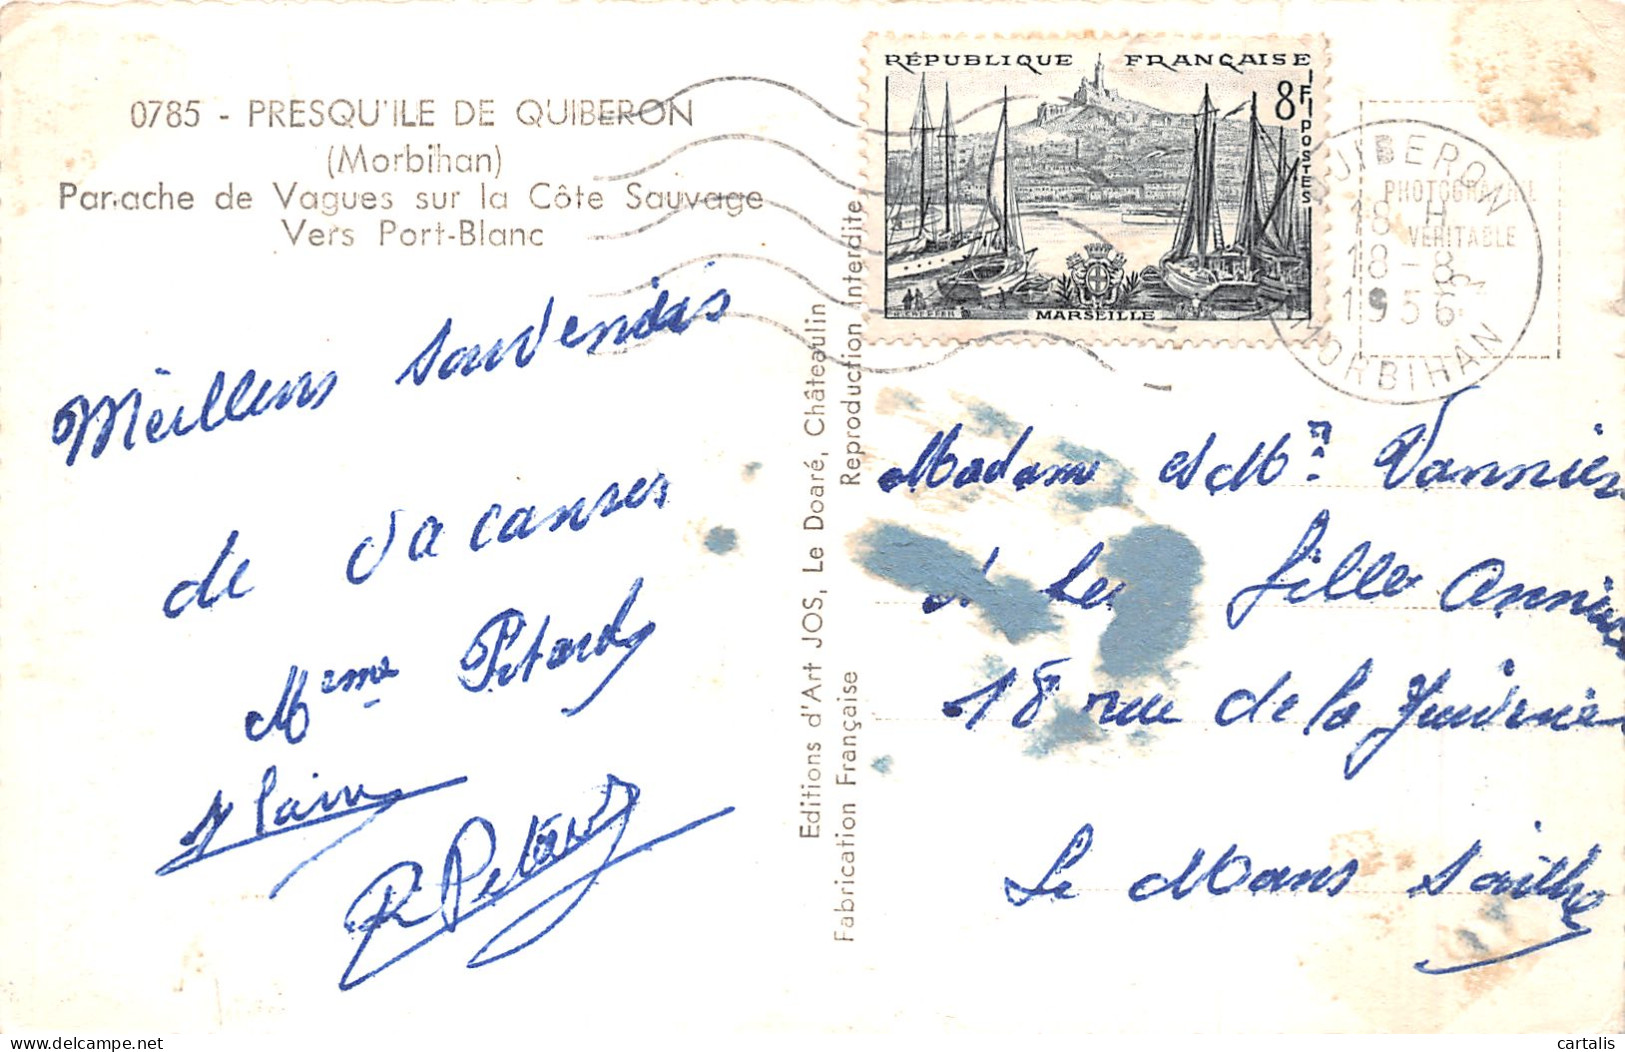 0785 - PRESQU'ILE DE QUIBERON
(Morbihan)
Panache de Vagues sur la Côte Sauvage
Vers Port-Blanc
Meilleurs souvenirs
de vacances
Mme Pitard
Alain
R Pitard
Editions d'Art JOS, Le Doaré, Châteaulin
Fabrication Française
Reproduction Interdite
RÉPUBLIQUE FRANÇAISE
8F
POSTES
MARSEILLE
QUIBERON
18 H
18-8
1956
MORBIHAN
PHOTOGRAPHIE
VÉRITABLE
Madame et Mr Vannier
et Les fille
18 rue de la
Le Mans Sarthe
Delcampe.net
cartalis